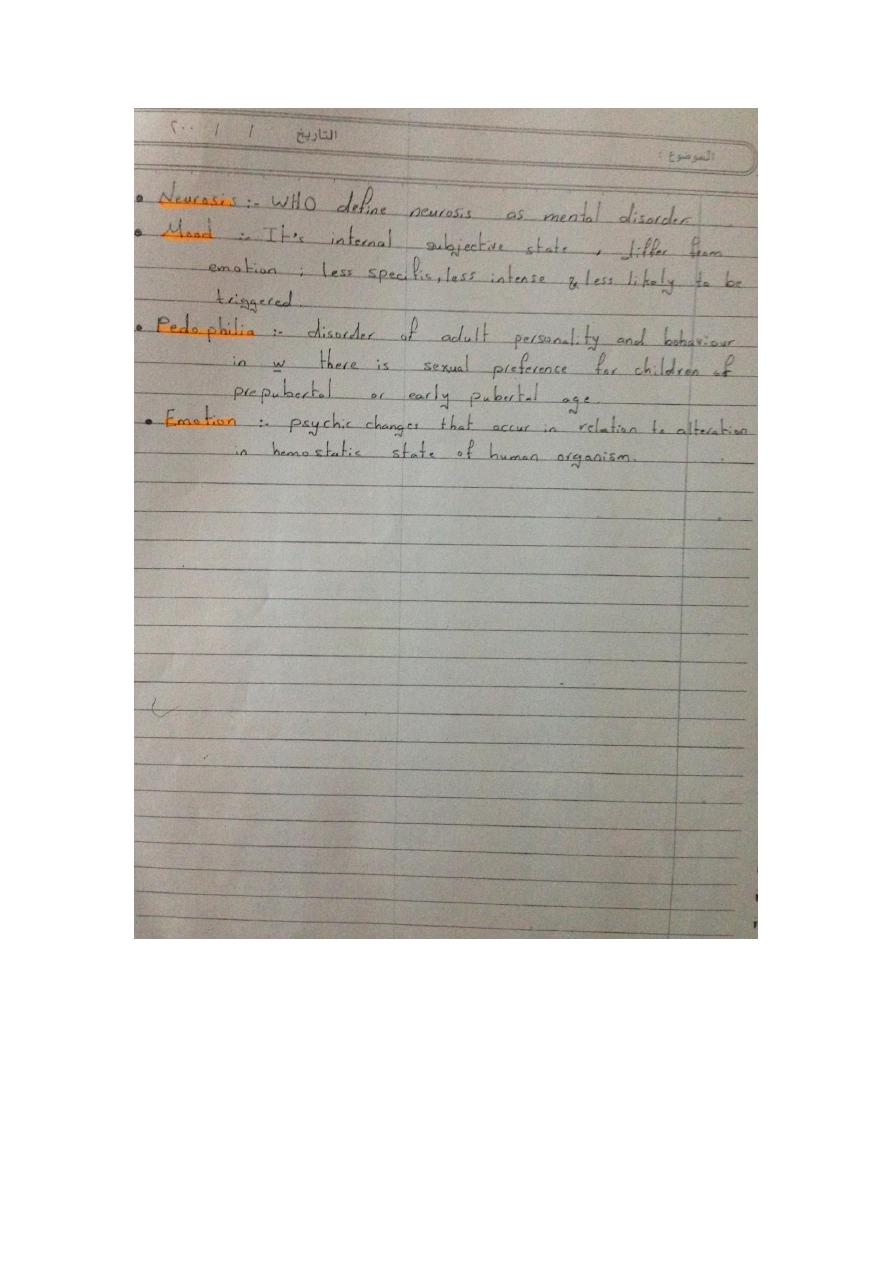 الموضوع : التاريخ / / ٢٠٠
• Neurosis :- WHO define neurosis as mental disorder
• Mood :- It's internal subjective state , differ from
emotion ; less specific, less intense & less likely to be
triggered.
• Pedophilia :- disorder of adult personality and behaviour
in w there is sexual preference for children of
prepubertal or early pubertal age.
• Emotion :- psychic changes that occur in relation to alteration
in hemostatic state of human organism.